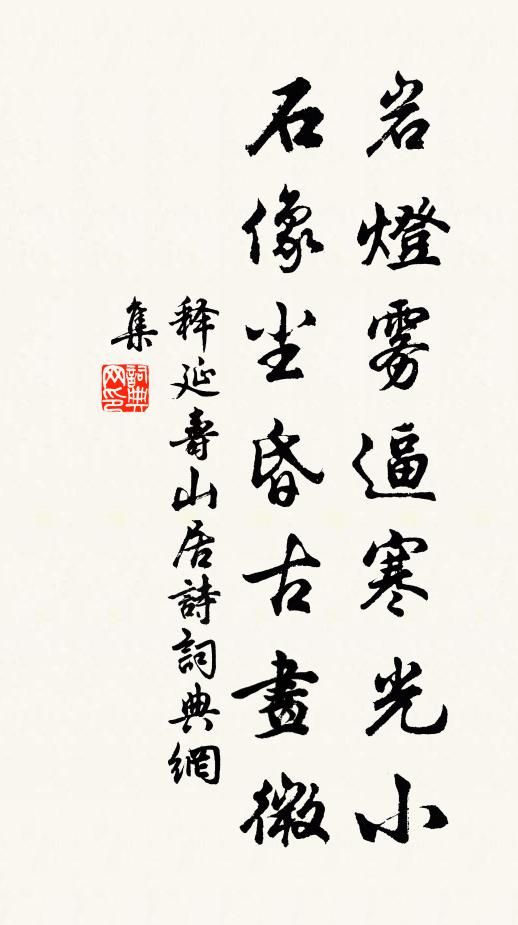 岩燈雾逼寒光小
石像尘昏古畫微
释延壽山居詩詞典網
集
詞典
网印